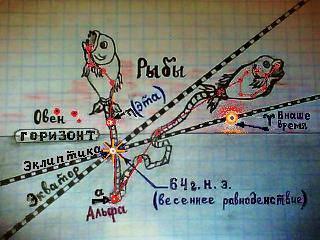 Рыбы
η(эта)
Овен
ГОРИЗОНТ
♈ В наше
время
Эклиптика
Экватор
α
Альфа
64 г. н. э.
(весеннее равноденствие)